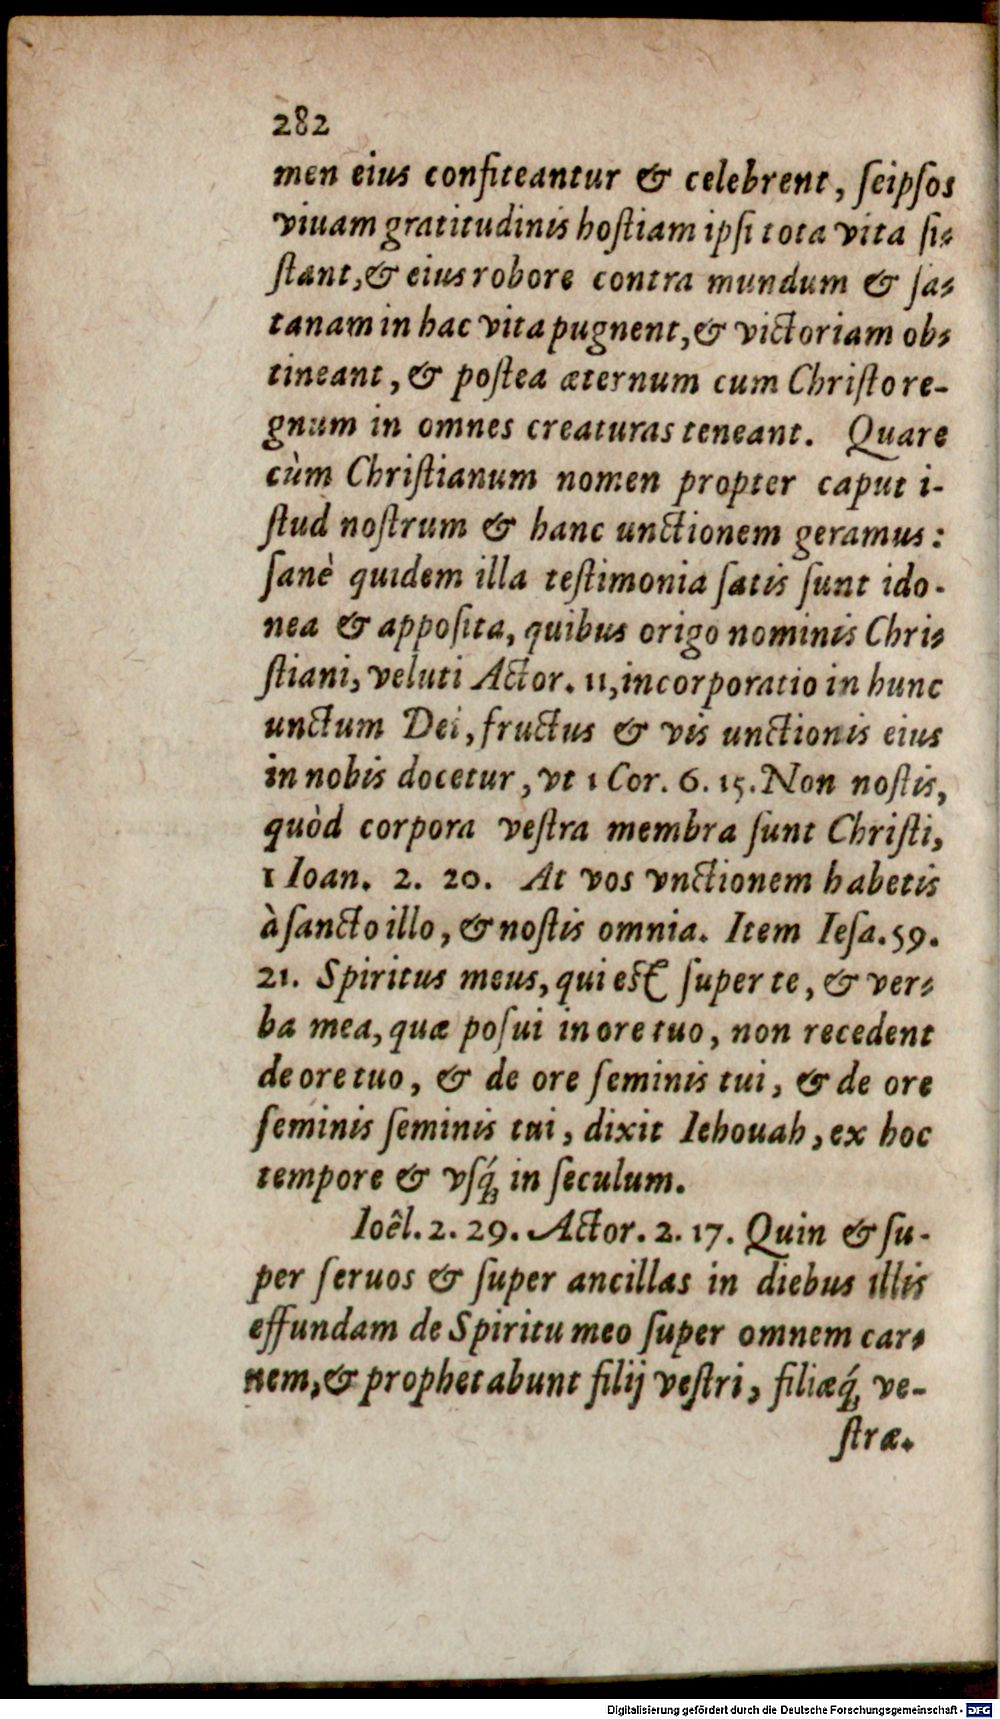 282
men eius confiteantur & celebrent, ſeipſos
viuam gratitudinis hoſtiam ipſi tota vita ſi-
ſtant, & eius robore contra mundum & ſa-
tanam in hac vita pugnent, & victoriam ob-
tineant, & poſtea æternum cum Chriſto re-
gnum in omnes creaturas teneant. Quare
cùm Chriſtianum nomen propter caput i-
ſtud noſtrum & hanc unctionem geramus:
ſanè quidem illa teſtimonia ſatis ſunt ido-
nea & appoſita, quibus origo nominis Chri-
ſtiani, veluti Actor. 11, incorporatio in hunc
unctum Dei, fructus & vis unctionis eius
in nobis docetur, vt 1 Cor. 6. 15. Non noſtis,
quòd corpora veſtra membra ſunt Chriſti,
1 Ioan. 2. 20. At vos vnctionem habetis
à ſancto illo, & noſtis omnia. Item Ieſa. 59.
21. Spiritus meus, qui eſt ſuper te, & ver-
ba mea, quæ poſui in ore tuo, non recedent
de ore tuo, & de ore ſeminis tui, & de ore
ſeminis ſeminis tui, dixit Iehouah, ex hoc
tempore & vſq́; in ſeculum.
Ioêl. 2. 29. Actor. 2. 17. Quin & ſu-
per ſeruos & ſuper ancillas in diebus illis
effundam de Spiritu meo ſuper omnem car-
nem, & prophetabunt filij veſtri, filiæq́; ve-
ſtræ.
Digitalisierung gefördert durch die Deutsche Forschungsgemeinschaft - DFG